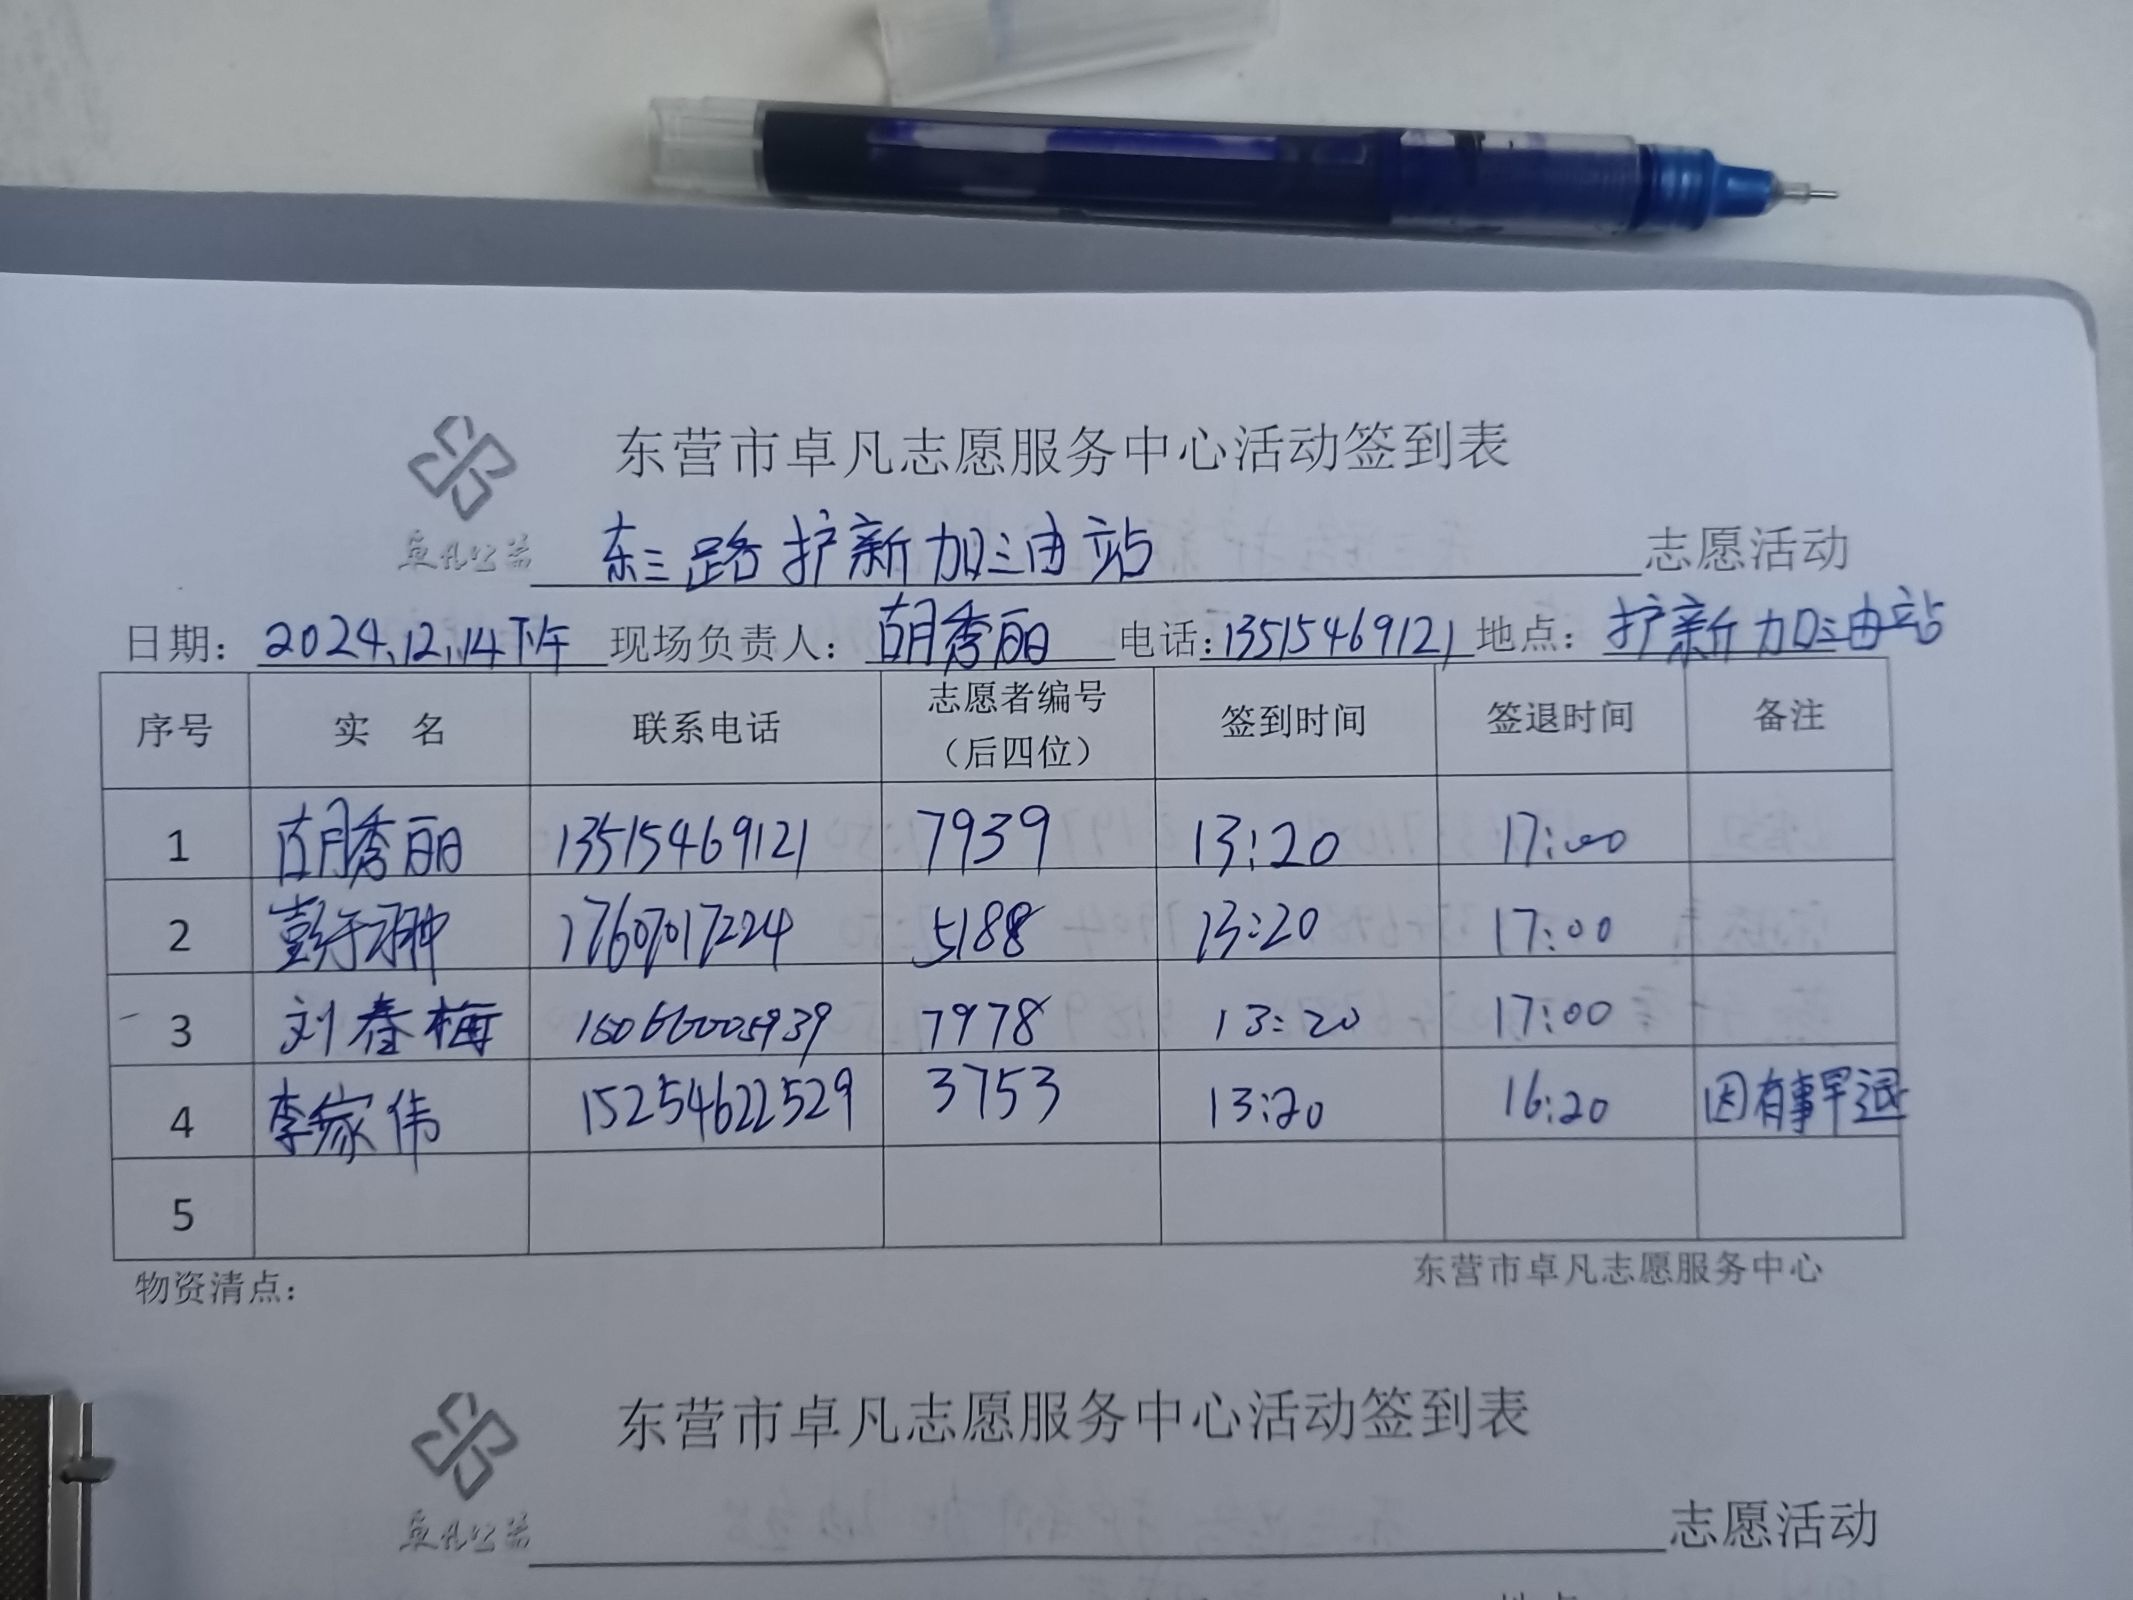 东营市卓凡志愿服务中心活动签到表
卓凡公益 东三路护新加油站 志愿活动
日期: 2024.12.14下午 现场负责人: 胡秀丽 电话: 13515469121 地点: 护新加油站
序号 实 名 联系电话 志愿者编号(后四位) 签到时间 签退时间 备注
1 胡秀丽 13515469121 7939 13:20 17:00
2 17607017224 5188 13:20 17:00
3 刘春梅 7978 13:20 17:00
4 李家伟 15254622529 3753 13:20 16:20 因有事早退
5
物资清点: 东营市卓凡志愿服务中心
东营市卓凡志愿服务中心活动签到表
卓凡公益 志愿活动